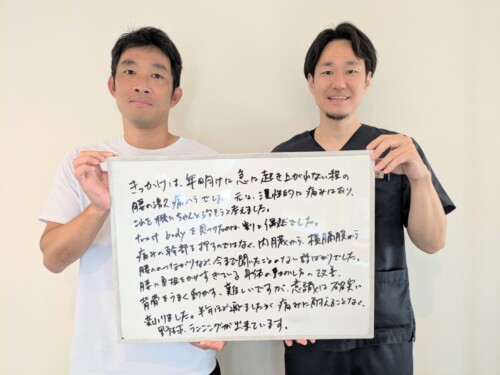 きっかけは、年明けに急に起き上がれない程の
腰の激痛からでした。元は、慢性的に痛みはあり、
これを機にちゃんと治そうと考えました。
trust bodyを見つけたのは、割と偶然でした。
痛みの幹部を押すのではなく、内臓から、横隔膜から
腰へのつながりなど、今まで聞いたことのない話ばかりでした。
腰に負担をかけすぎている身体の動かし方の改善、
背骨をうまく動かす、難しいですが、意識は確実に
変わりました。半年ほど通いましたが痛みに耐えることなく、
野球、ランニングが出来ています。